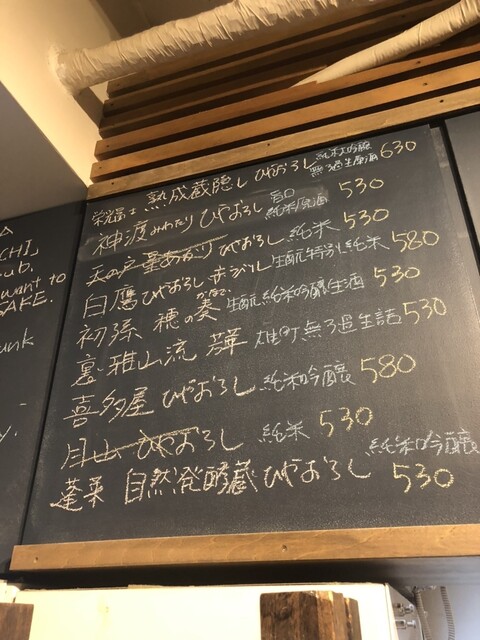 栄光冨士 熟成蔵隠し ひやおろし 純米大吟醸 無ろ過生原酒 630
神渡 みわたり ひやおろし 旨口 純米原酒 530
天の戸 星あかり ひやおろし 純米 530
白鷹 ひやおろし 赤ラベル 生酛特別純米 580
初孫 穂の奏 かなで 生酛純米吟醸生酒 530
裏・雅山流 華 雄町無ろ過生詰 530
喜多屋 ひやおろし 純米吟醸 580
月山 ひやおろし 純米 530
蓬莱 自然発酵蔵 ひやおろし 純米吟醸 530
CHI
ub.
want to
SAKE.
unk
y.